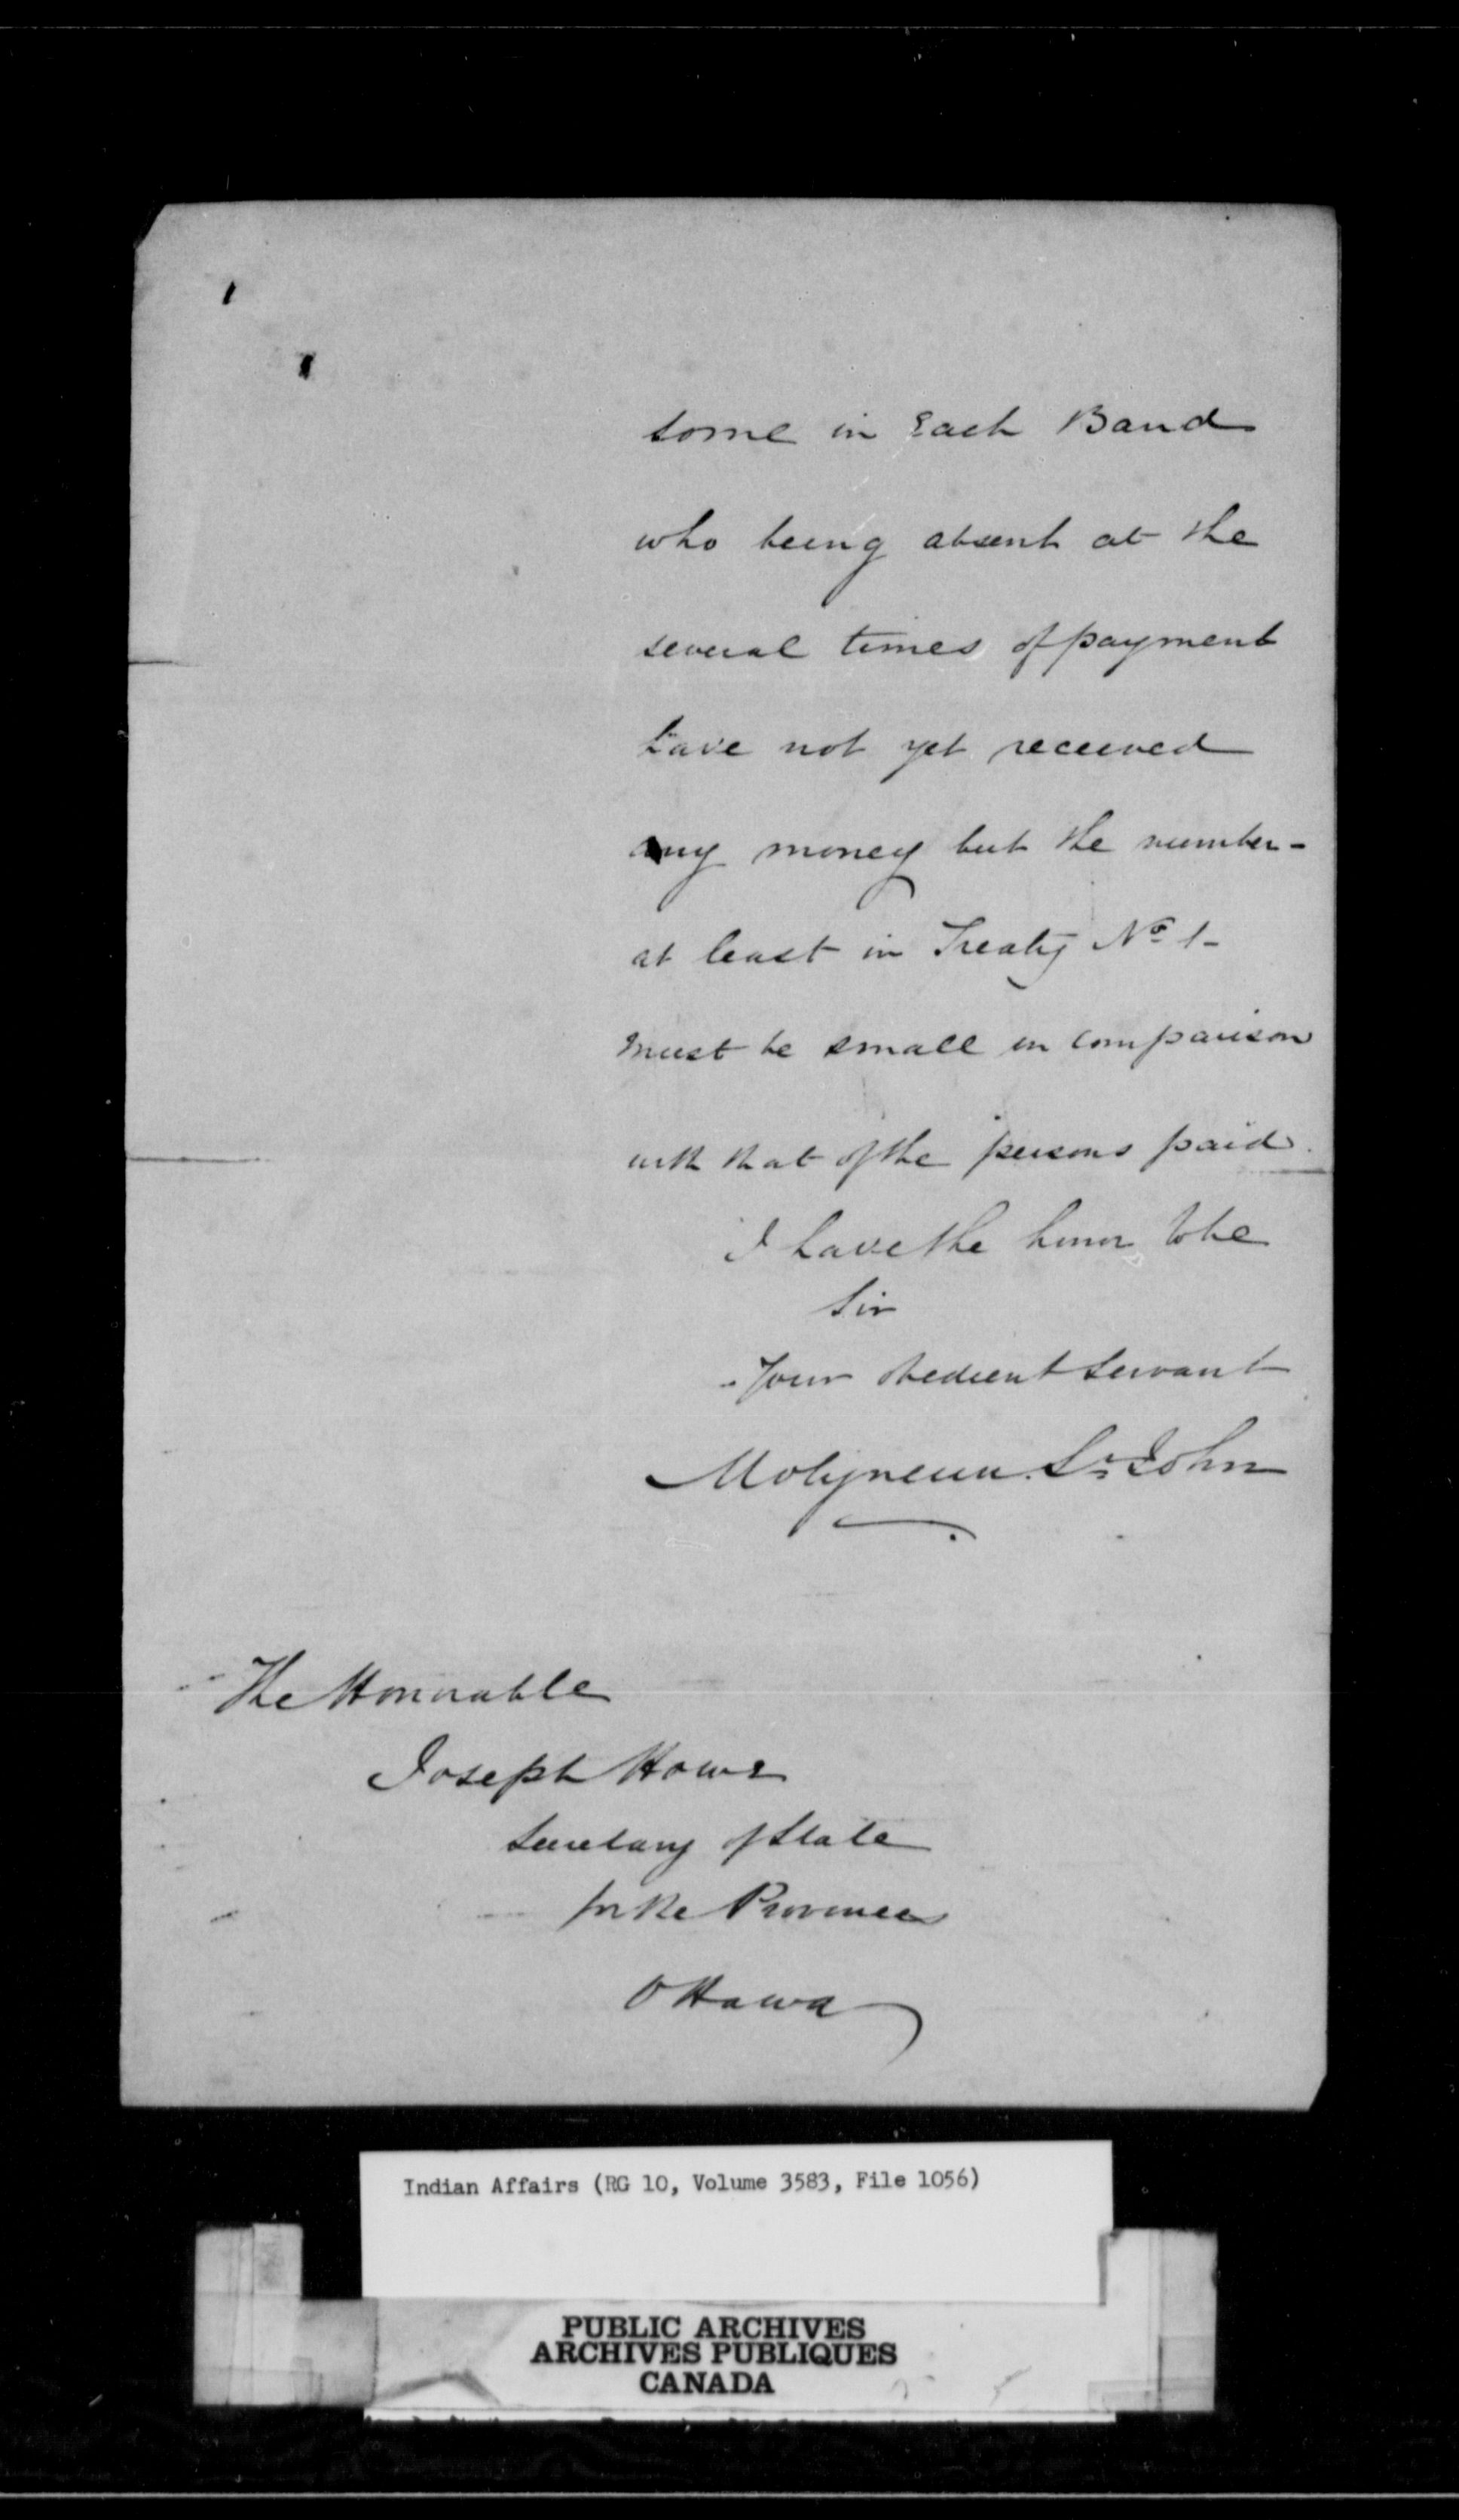 some in Each Band
who being absent at the
several times of payment
have not yet received
any money but the number -
at least in Treaty No 1 -
must be small in comparison
with that of the persons paid.
I have the honor to be
Sir
Your obedient Servant
Molyneux St John
The Honorable
Joseph Howe
Secretary of State
for the Provinces
Ottawa
Indian Affairs (RG 10, Volume 3583, File 1056)
PUBLIC ARCHIVES
ARCHIVES PUBLIQUES
CANADA